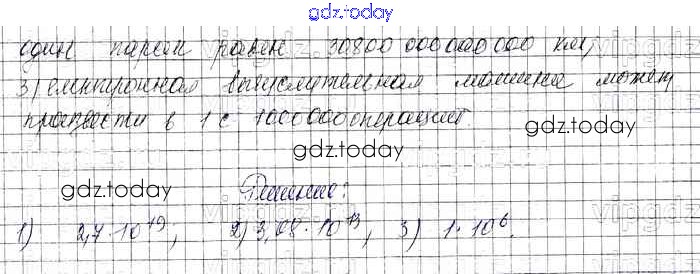 gdz.today
один парсек равен 30800 000 000 000 км;
3) электронная вычислительная машина может
произвести в 1 с 1000000 операций.
gdz.today
gdz.today
gdz.today
Решение:
1) 2,7·10¹⁹; 2) 3,08·10¹³; 3) 1·10⁶.